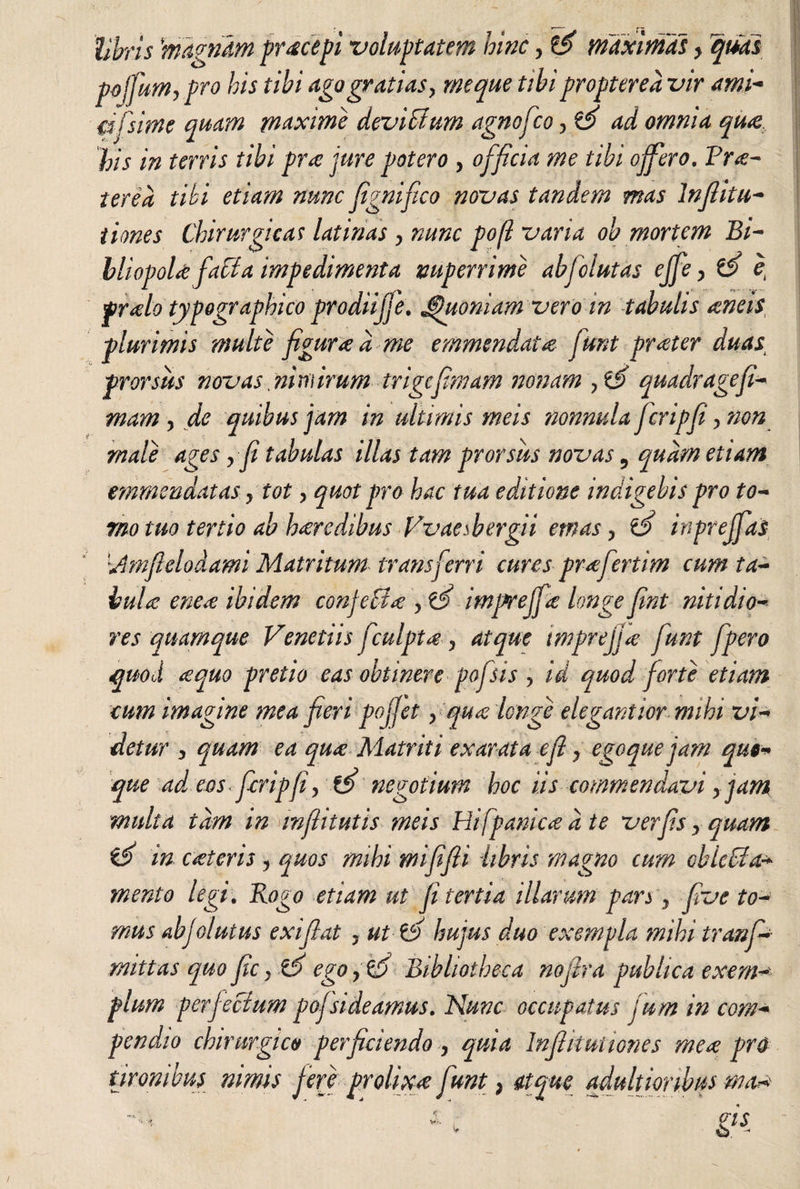 libris magnam præcepi voluptatem hinc, & maximas, quas
possum, pro his tibi ago gratias, meque tibi propterea vir ami-
cissime quam maximè devictum agnosco, & ad omnia quæ
his in terris tibi præ jure potero, officia me tibi offero. Præ-
tereà tibi etiam nunc significo novas tandem mas Institu-
tiones Chirurgicas latinas, nunc post varia ob mortem Bi-
bliopolæ facta impedimenta nuperrimè absolutas esse, & è
prælo typographico prodiisse. Quoniam vero in tabulis æneis
plurimis multè figuræ à me emmendatæ sunt præter duas
prorsùs novas nimirum trigesimam nonam, & quadragesi-
mam, de quibus jam in ultimis meis nonnula scripsi, non
malè ages, si tabulas illas tam prorsùs novas, quàm etiam
emmendatas, tot, quot pro hac tua editione indigebis pro to-
mo tuo tertio ab hæredibus Vvaesbergii emas, & inpressas
Amstelodami Matritum transferri cures præsertim cum ta-
bulæ eneæ ibidem conjectæ, & impressæ longe sint nitidio-
res quamque Venetiis sculptæ, atque impressæ sunt spero
quod æquo pretio eas obtinere possis, id quod fortè etiam
cum imagine mea fieri posset, quæ longè elegantior mihi vi-
detur, quam ea quæ Matriti exarata est, egoque jam quo-
que ad eos scripsi, & negotium hoc iis commendavi, jam
multa tàm in institutis meis Hispanicæ à te versis, quam
& in cæteris, quos mihi misisti libris magno cum oblecta-
mento legi. Rogo etiam ut si tertia illarum pars, sive to-
mus absolutus existat, ut & hujus duo exempla mihi transf-
mittas quo sic, & ego, & Bibliotheca nostra publica exem-
plum perfectum possideamus. Nunc occupatus sum in com-
pendio chirurgico perficiendo, quia Institutiones meæ pro
tironibus nimis ferè prolixæ sunt, atque adultioribus ma-
gis